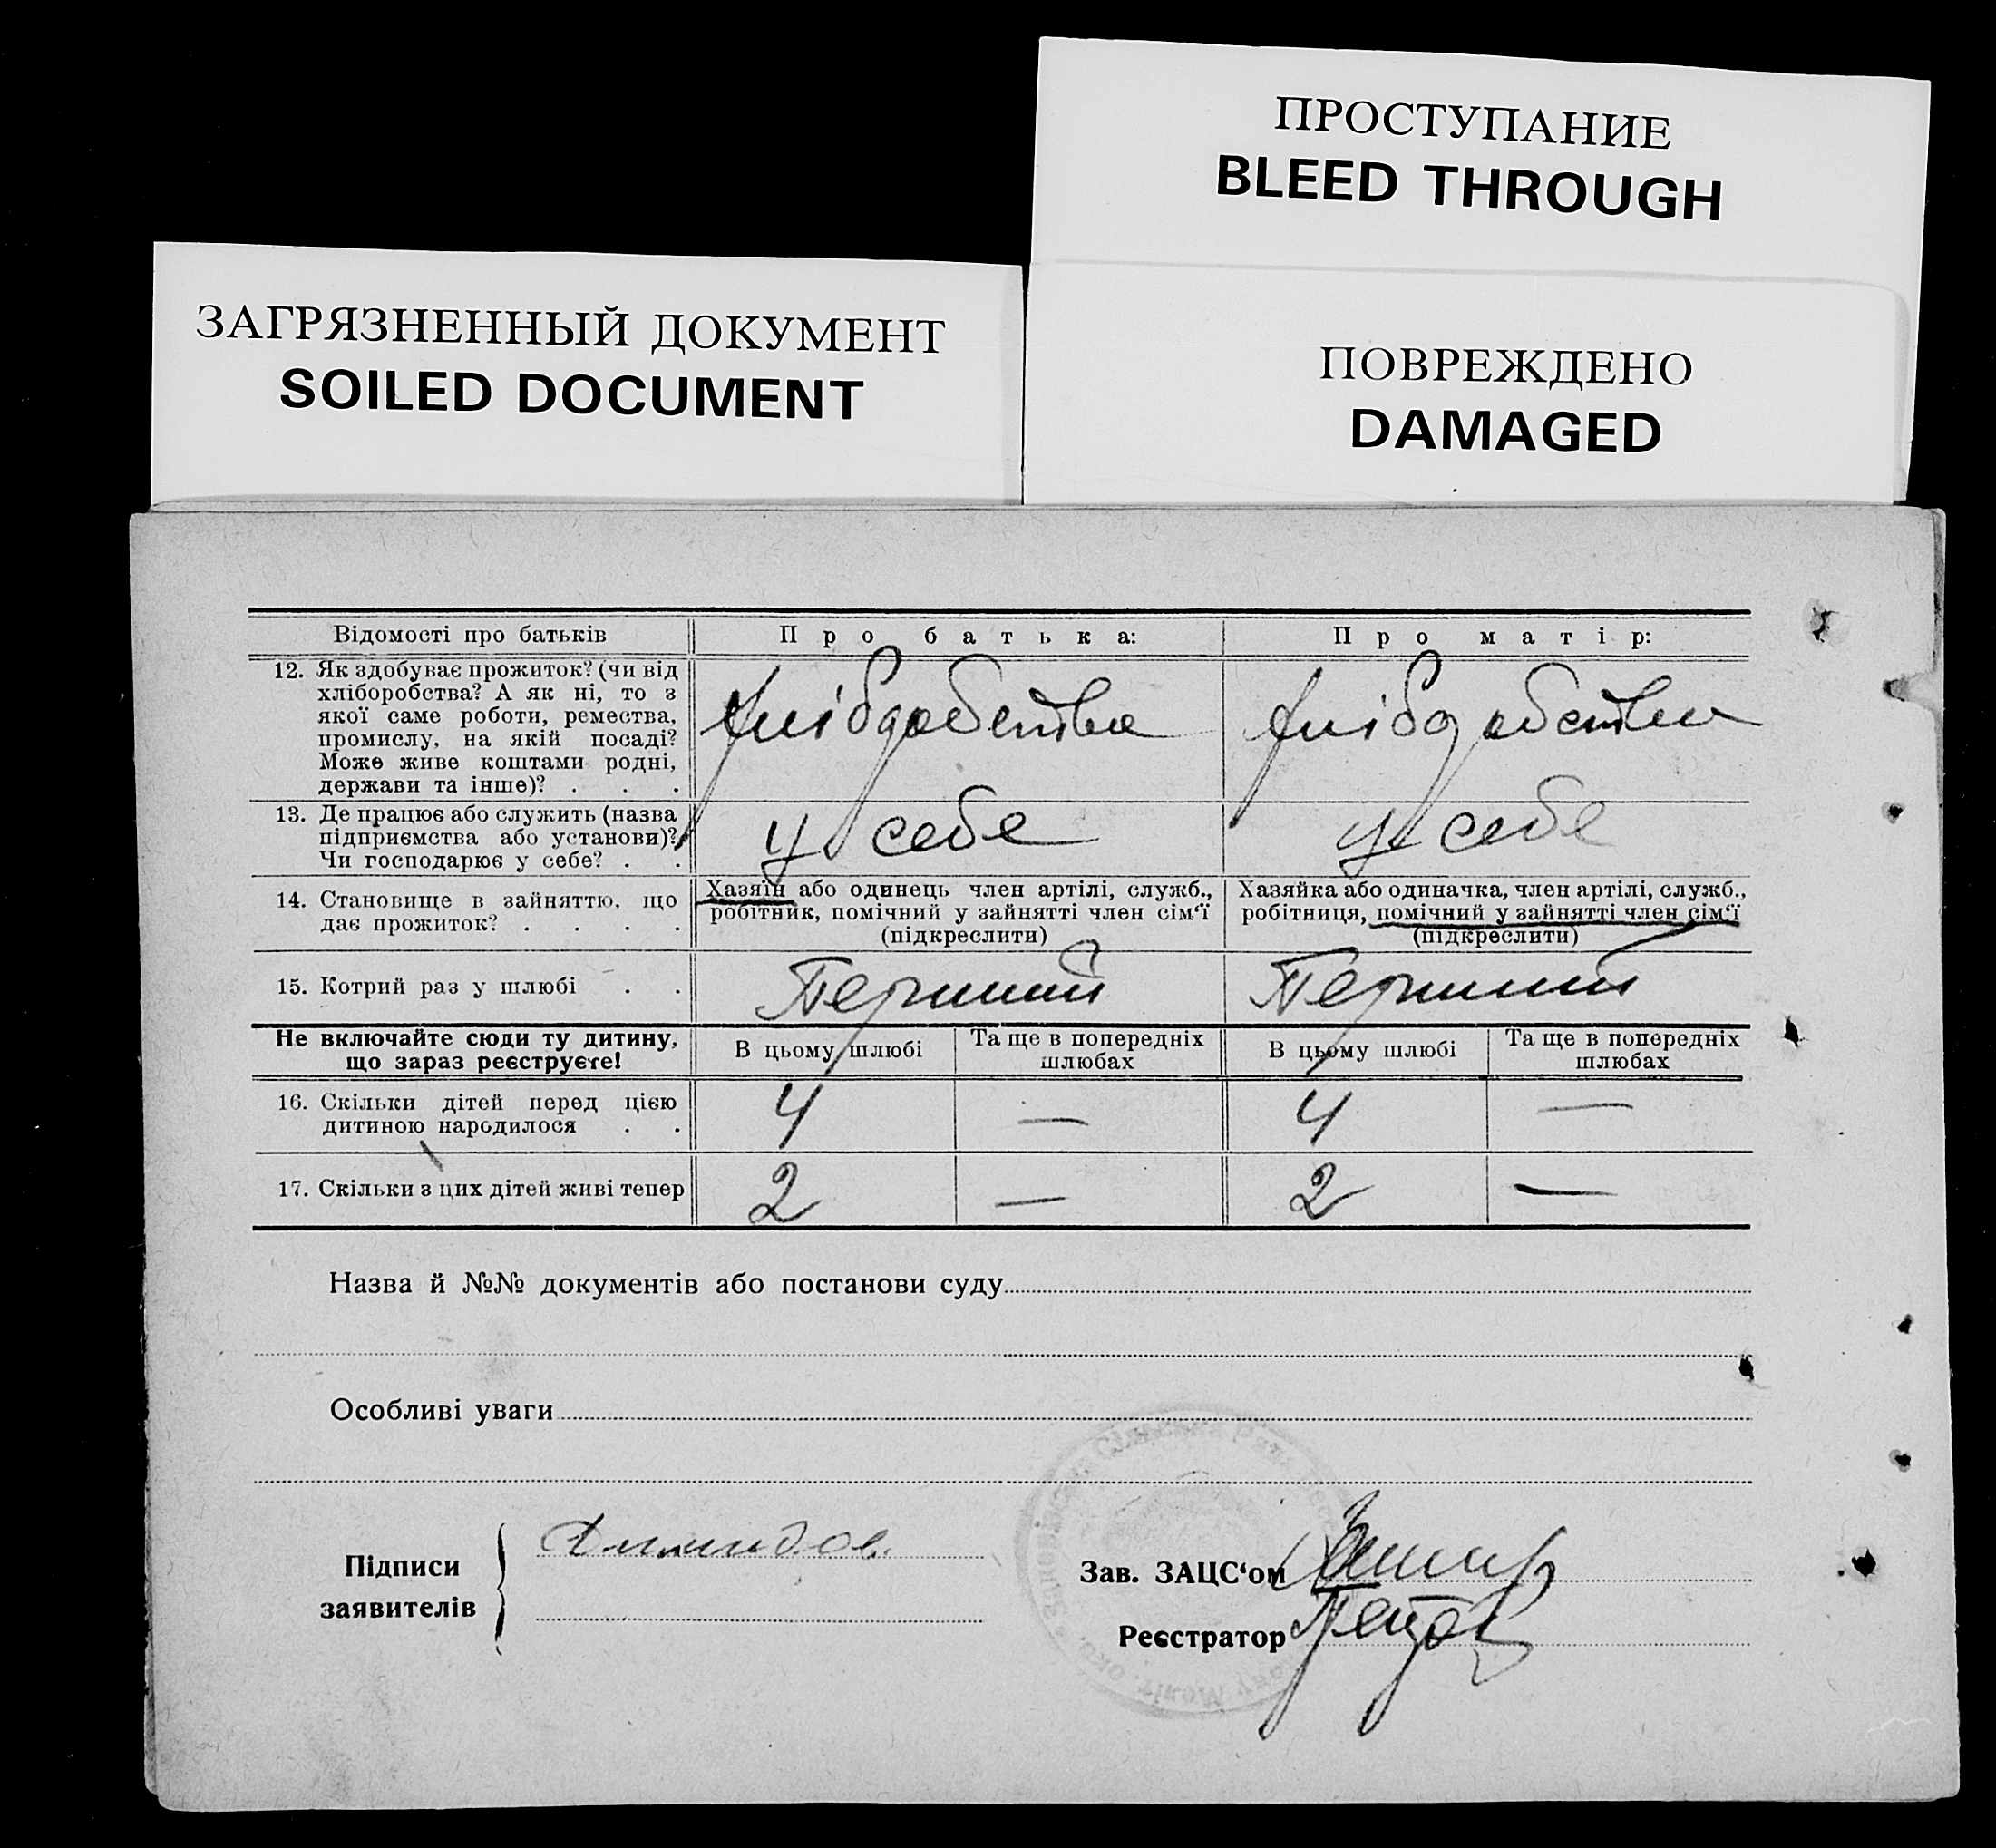 ПРОСТУПАНИЕ
BLEED THROUGH
ЗАГРЯЗНЕННЫЙ ДОКУМЕНТ
SOILED DOCUMENT
ПОВРЕЖДЕНО
DAMAGED
Відомості про батьків
Про батька:
Про матір:
12. Як здобуває прожиток? (чи від
хліборобства? А як ні, то з
якої саме роботи, ремества,
промислу, на якій посаді?
Може живе коштами родні,
держави та інше)? . . .
13. Де працює або служить (назва
підприємства або установи)?
Чи господарює у себе? . .
у себе
у себе
14. Становище в зайняттю, що
дає прожиток? . . . .
Хазяїн або одинець член артілі, служб.,
робітник, помічний у зайнятті член сім‘ї
(підкреслити)
Хазяйка або одиначка, член артілі, служб.,
робітниця, помічний у зайнятті член сім‘ї
(підкреслити)
15. Котрий раз у шлюбі . .
Перший
Перший
Не включайте сюди ту дитину,
що зараз реєструєте!
В цьому шлюбі
Та ще в попередніх
шлюбах
В цьому шлюбі
Та ще в попередніх
шлюбах
16. Скільки дітей перед цією
дитиною народилося . .
4 — 4 —
17. Скільки з цих дітей живі тепер
2 — 2 —
Назва й №№ документів або постанови суду
Особливі уваги
Підписи
заявителів
Зав. ЗАЦС‘ом
Реєстратор